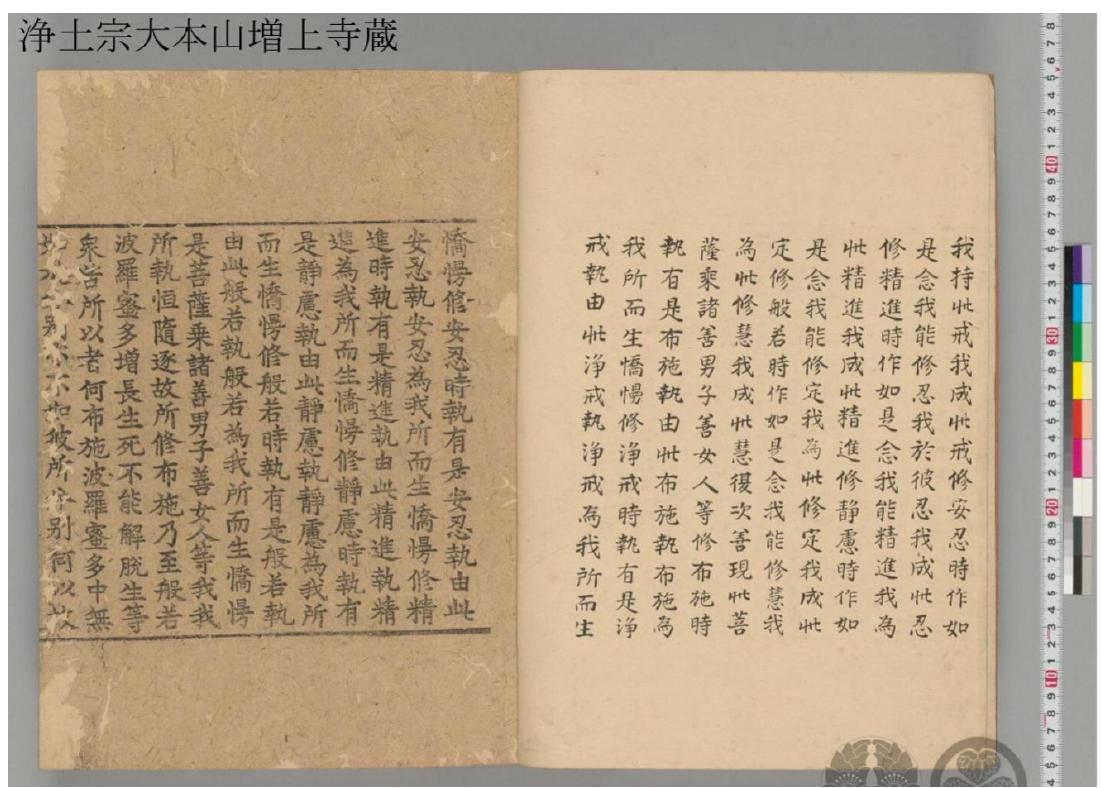 浄土宗大本山増上寺蔵
我持此戒我成此戒修安忍時作如
是念我能修忍我於彼忍我成此忍
修精進時作如是念我能精進我為
此精進我成此精進修静慮時作如
是念我能修定我為此修定我成此
定修般若時作如是念我能修慧我
為此修慧我成此慧復次善現此菩
薩乘諸善男子善女人等修布施時
執有是布施執由此布施執布施為
我所而生憍慢修浄戒時執有是浄
戒執由此浄戒執浄戒為我所而生
憍慢修安忍時執有是安忍執由此
安忍執安忍為我所而生憍慢修精
進時執有是精進執由此精進執精
進為我所而生憍慢修靜慮時執有
是靜慮執由此靜慮執靜慮為我所
而生憍慢修般若時執有是般若執
由此般若執般若為我所而生憍慢
是菩薩乘諸善男子善女人等我我
所執恒隨逐故所修布施乃至般若
波羅蜜多增長生死不能解脫生等
衆苦所以者何布施波羅蜜多中無
如是分別亦不如彼所分別何以故